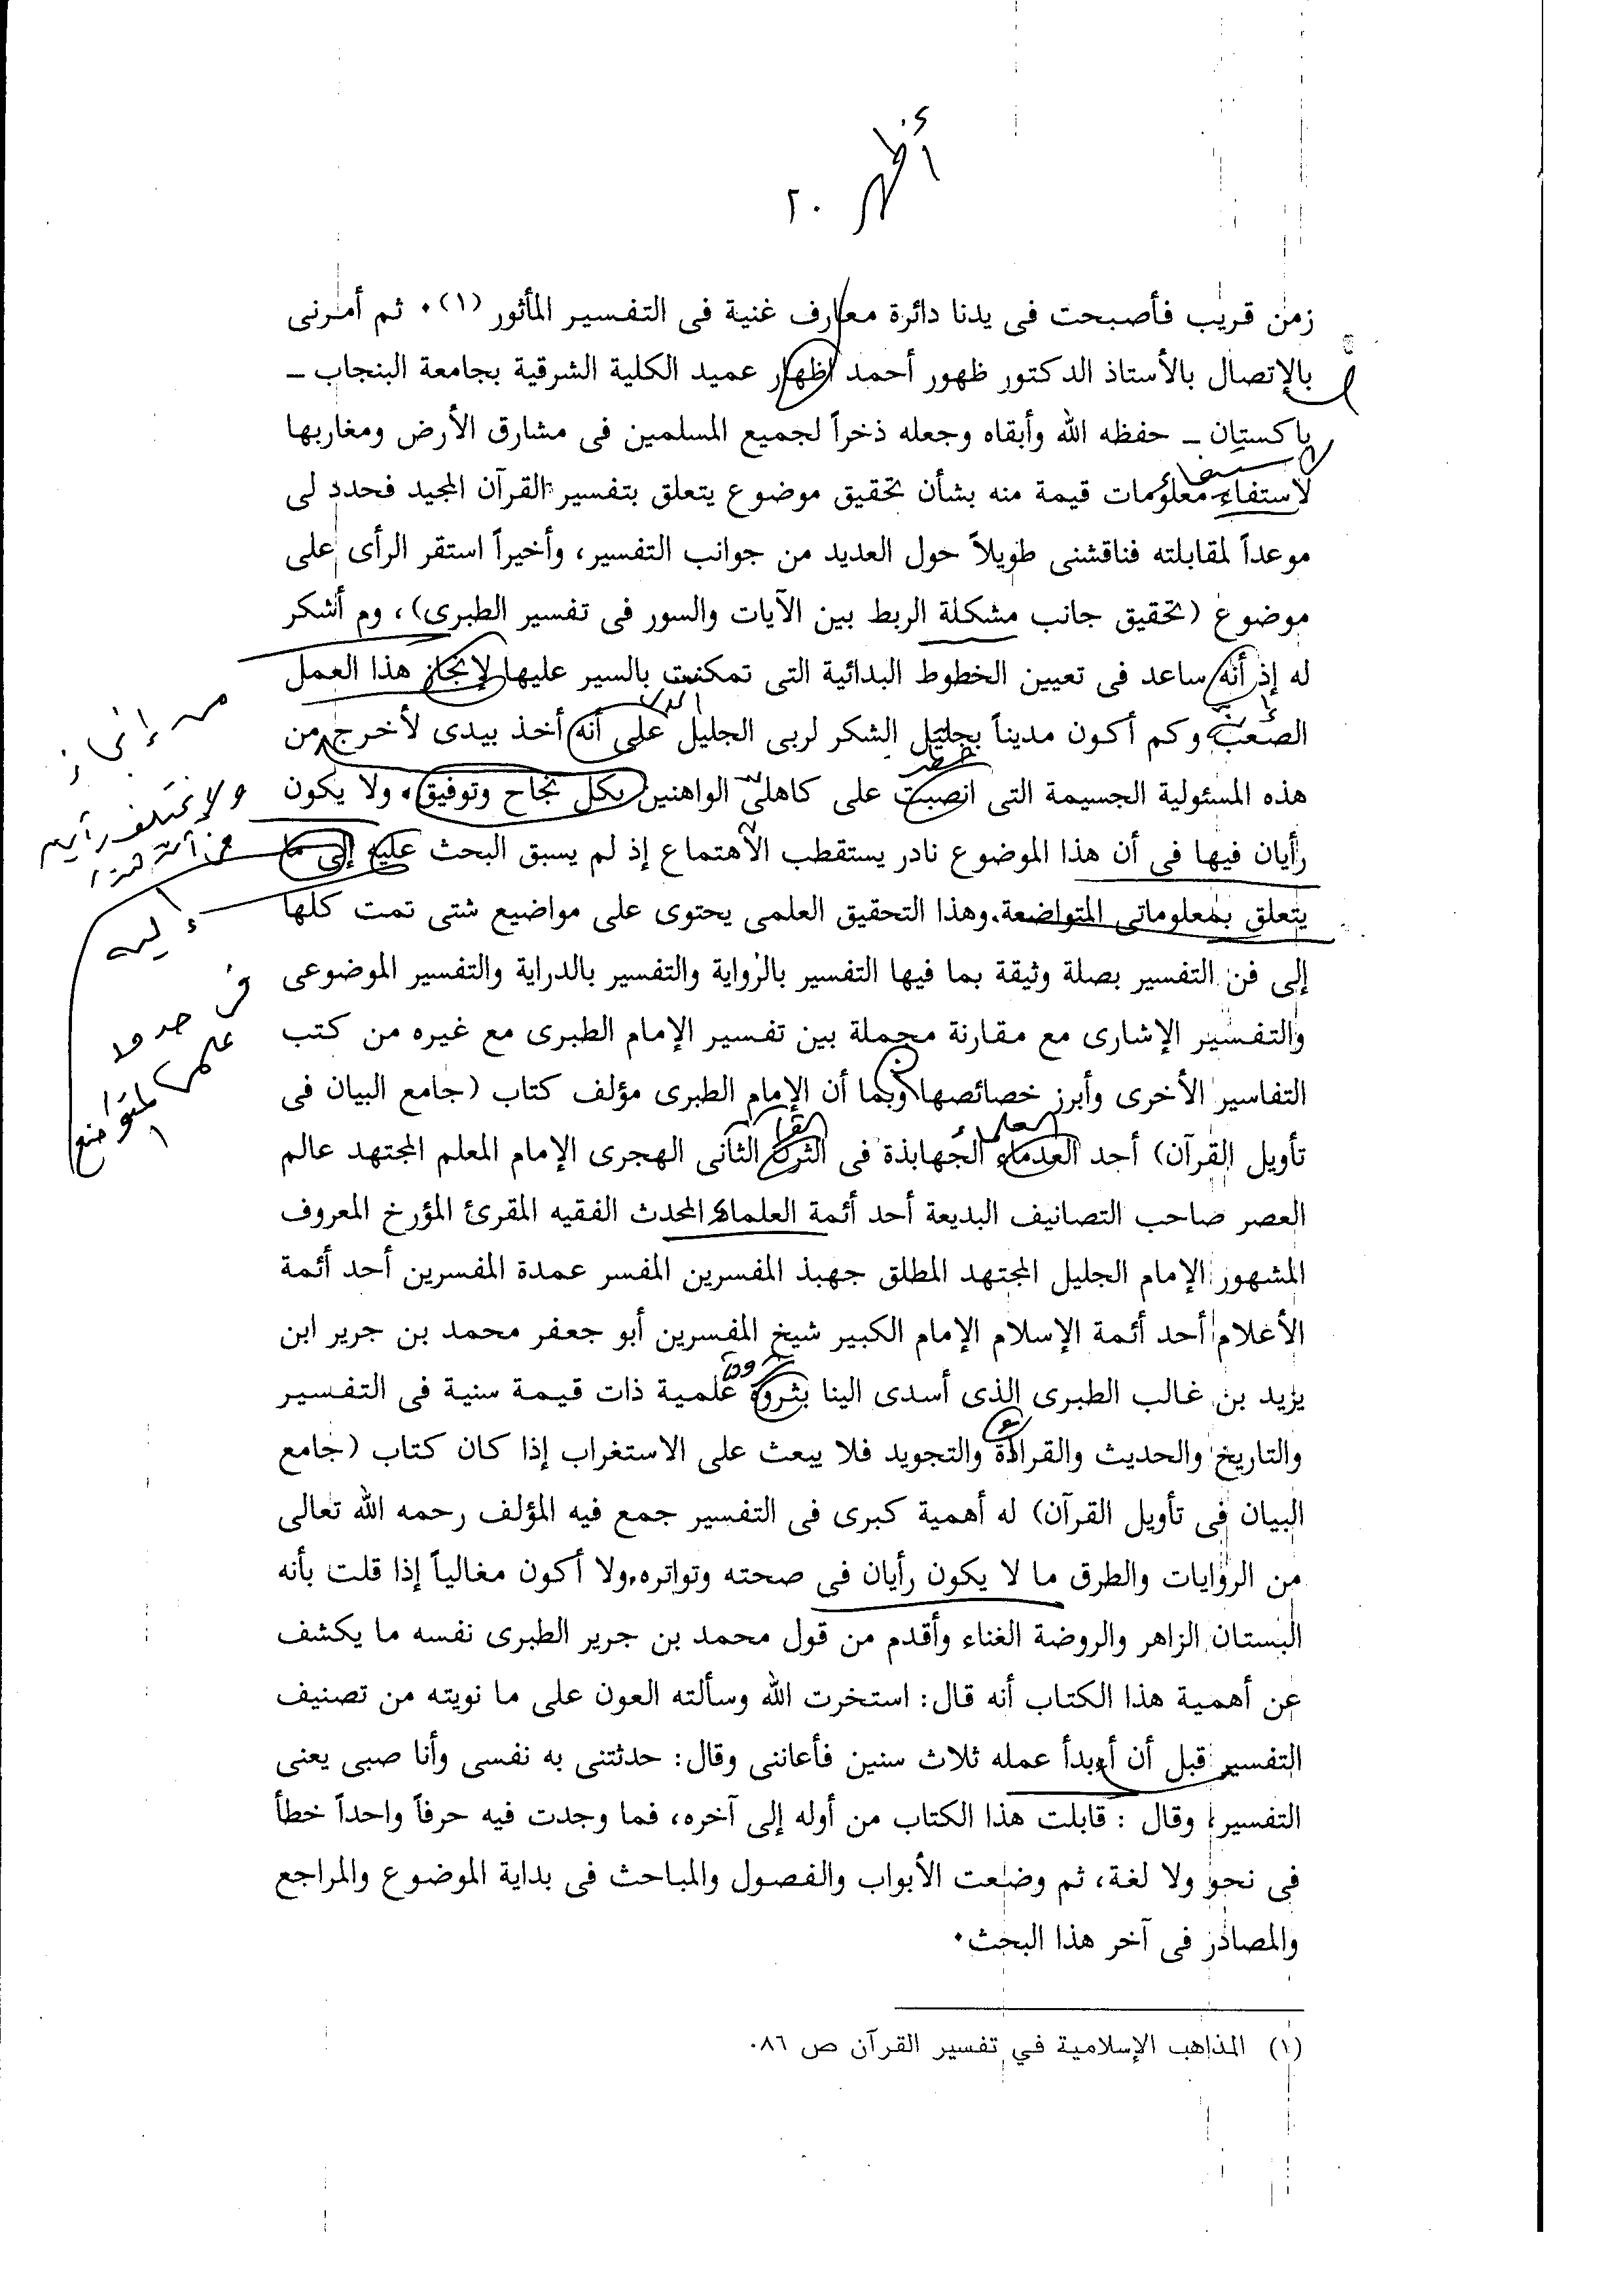 أظهر
٢٠
زمن قريب فأصبحت فى يدنا دائرة معارف غنية فى التفسير المأثور (١)٠ ثم أمرنى
بالإتصال بالأستاذ الدكتور ظهور أحمد اظهار عميد الكلية الشرقية بجامعة البنجاب ــ
باكستان ــ حفظه الله وأبقاه وجعله ذخراً لجميع المسلمين فى مشارق الأرض ومغاربها
لاستفاء معلومات قيمة منه بشأن تحقيق موضوع يتعلق بتفسير القرآن المجيد فحدد لى
موعداً لمقابلته فناقشنى طويلاً حول العديد من جوانب التفسير، وأخيراً استقر الرأى على
موضوع (تحقيق جانب مشكلة الربط بين الآيات والسور فى تفسير الطبرى)، وم أشكر
له إذ أنه ساعد فى تعيين الخطوط البدائية التى تمكنت بالسير عليها لإنجاز هذا العمل
من إنجاز
الصعب وكم أكون مديناً بجليل الشكر لربى الجليل على أنه أخذ بيدى لأخرج من
الذى
هذه المسئولية الجسيمة التى انصبت على كاهلى الواهنين بكل نجاح وتوفيق٠ ولا يكون
ولا يختلف رأيان
رأيان فيها فى أن هذا الموضوع نادر يستقطب الاهتماع إذ لم يسبق البحث عليه إلى ما
يتعلق بمعلوماتى المتواضعة٠ وهذا التحقيق العلمى يحتوى على مواضيع شتى تمت كلها
إليه
إلى فن التفسير بصلة وثيقة بما فيها التفسير بالرواية والتفسير بالدراية والتفسير الموضوعى
فى حدود
والتفسير الإشارى مع مقارنة مجملة بين تفسير الإمام الطبرى مع غيره من كتب
علمى
المتواضع
التفاسير الأخرى وأبرز خصائصها وبما أن الإمام الطبرى مؤلف كتاب (جامع البيان فى
العلماء
القرن
تأويل القرآن) أحد العدماء الجهابذة فى الثرن الثانى الهجرى الإمام المعلم المجتهد عالم
العصر صاحب التصانيف البديعة أحد أئمة العلماء المحدث الفقيه المقرئ المؤرخ المعروف
المشهور الإمام الجليل المجتهد المطلق جهبذ المفسرين المفسر عمدة المفسرين أحد أئمة
الأعلام أحد أئمة الإسلام الإمام الكبير شيخ المفسرين أبو جعفر محمد بن جرير ابن
ثروة
يزيد بن غالب الطبرى الذى أسدى الينا بثروة علمية ذات قيمة سنية فى التفسير
والتاريخ والحديث والقراءة والتجويد فلا يبعث على الاستغراب إذا كان كتاب (جامع
البيان فى تأويل القرآن) له أهمية كبرى فى التفسير جمع فيه المؤلف رحمه الله تعالى
من الروايات والطرق ما لا يكون رأيان فى صحته وتواتره٠ ولا أكون مغالياً إذا قلت بأنه
البستان الزاهر والروضة الغناء وأقدم من قول محمد بن جرير الطبرى نفسه ما يكشف
عن أهمية هذا الكتاب أنه قال: استخرت الله وسألته العون على ما نويته من تصنيف
التفسير قبل أن أبدأ عمله ثلاث سنين فأعاننى وقال: حدثتنى به نفسى وأنا صبى يعنى
التفسير، وقال : قابلت هذا الكتاب من أوله إلى آخره، فما وجدت فيه حرفاً واحداً خطأ
فى نحو ولا لغة، ثم وضعت الأبواب والفصول والمباحث فى بداية الموضوع والمراجع
والمصادر فى آخر هذا البحث٠
(١) المذاهب الإسلامية في تفسير القرآن ص ٨٦٠